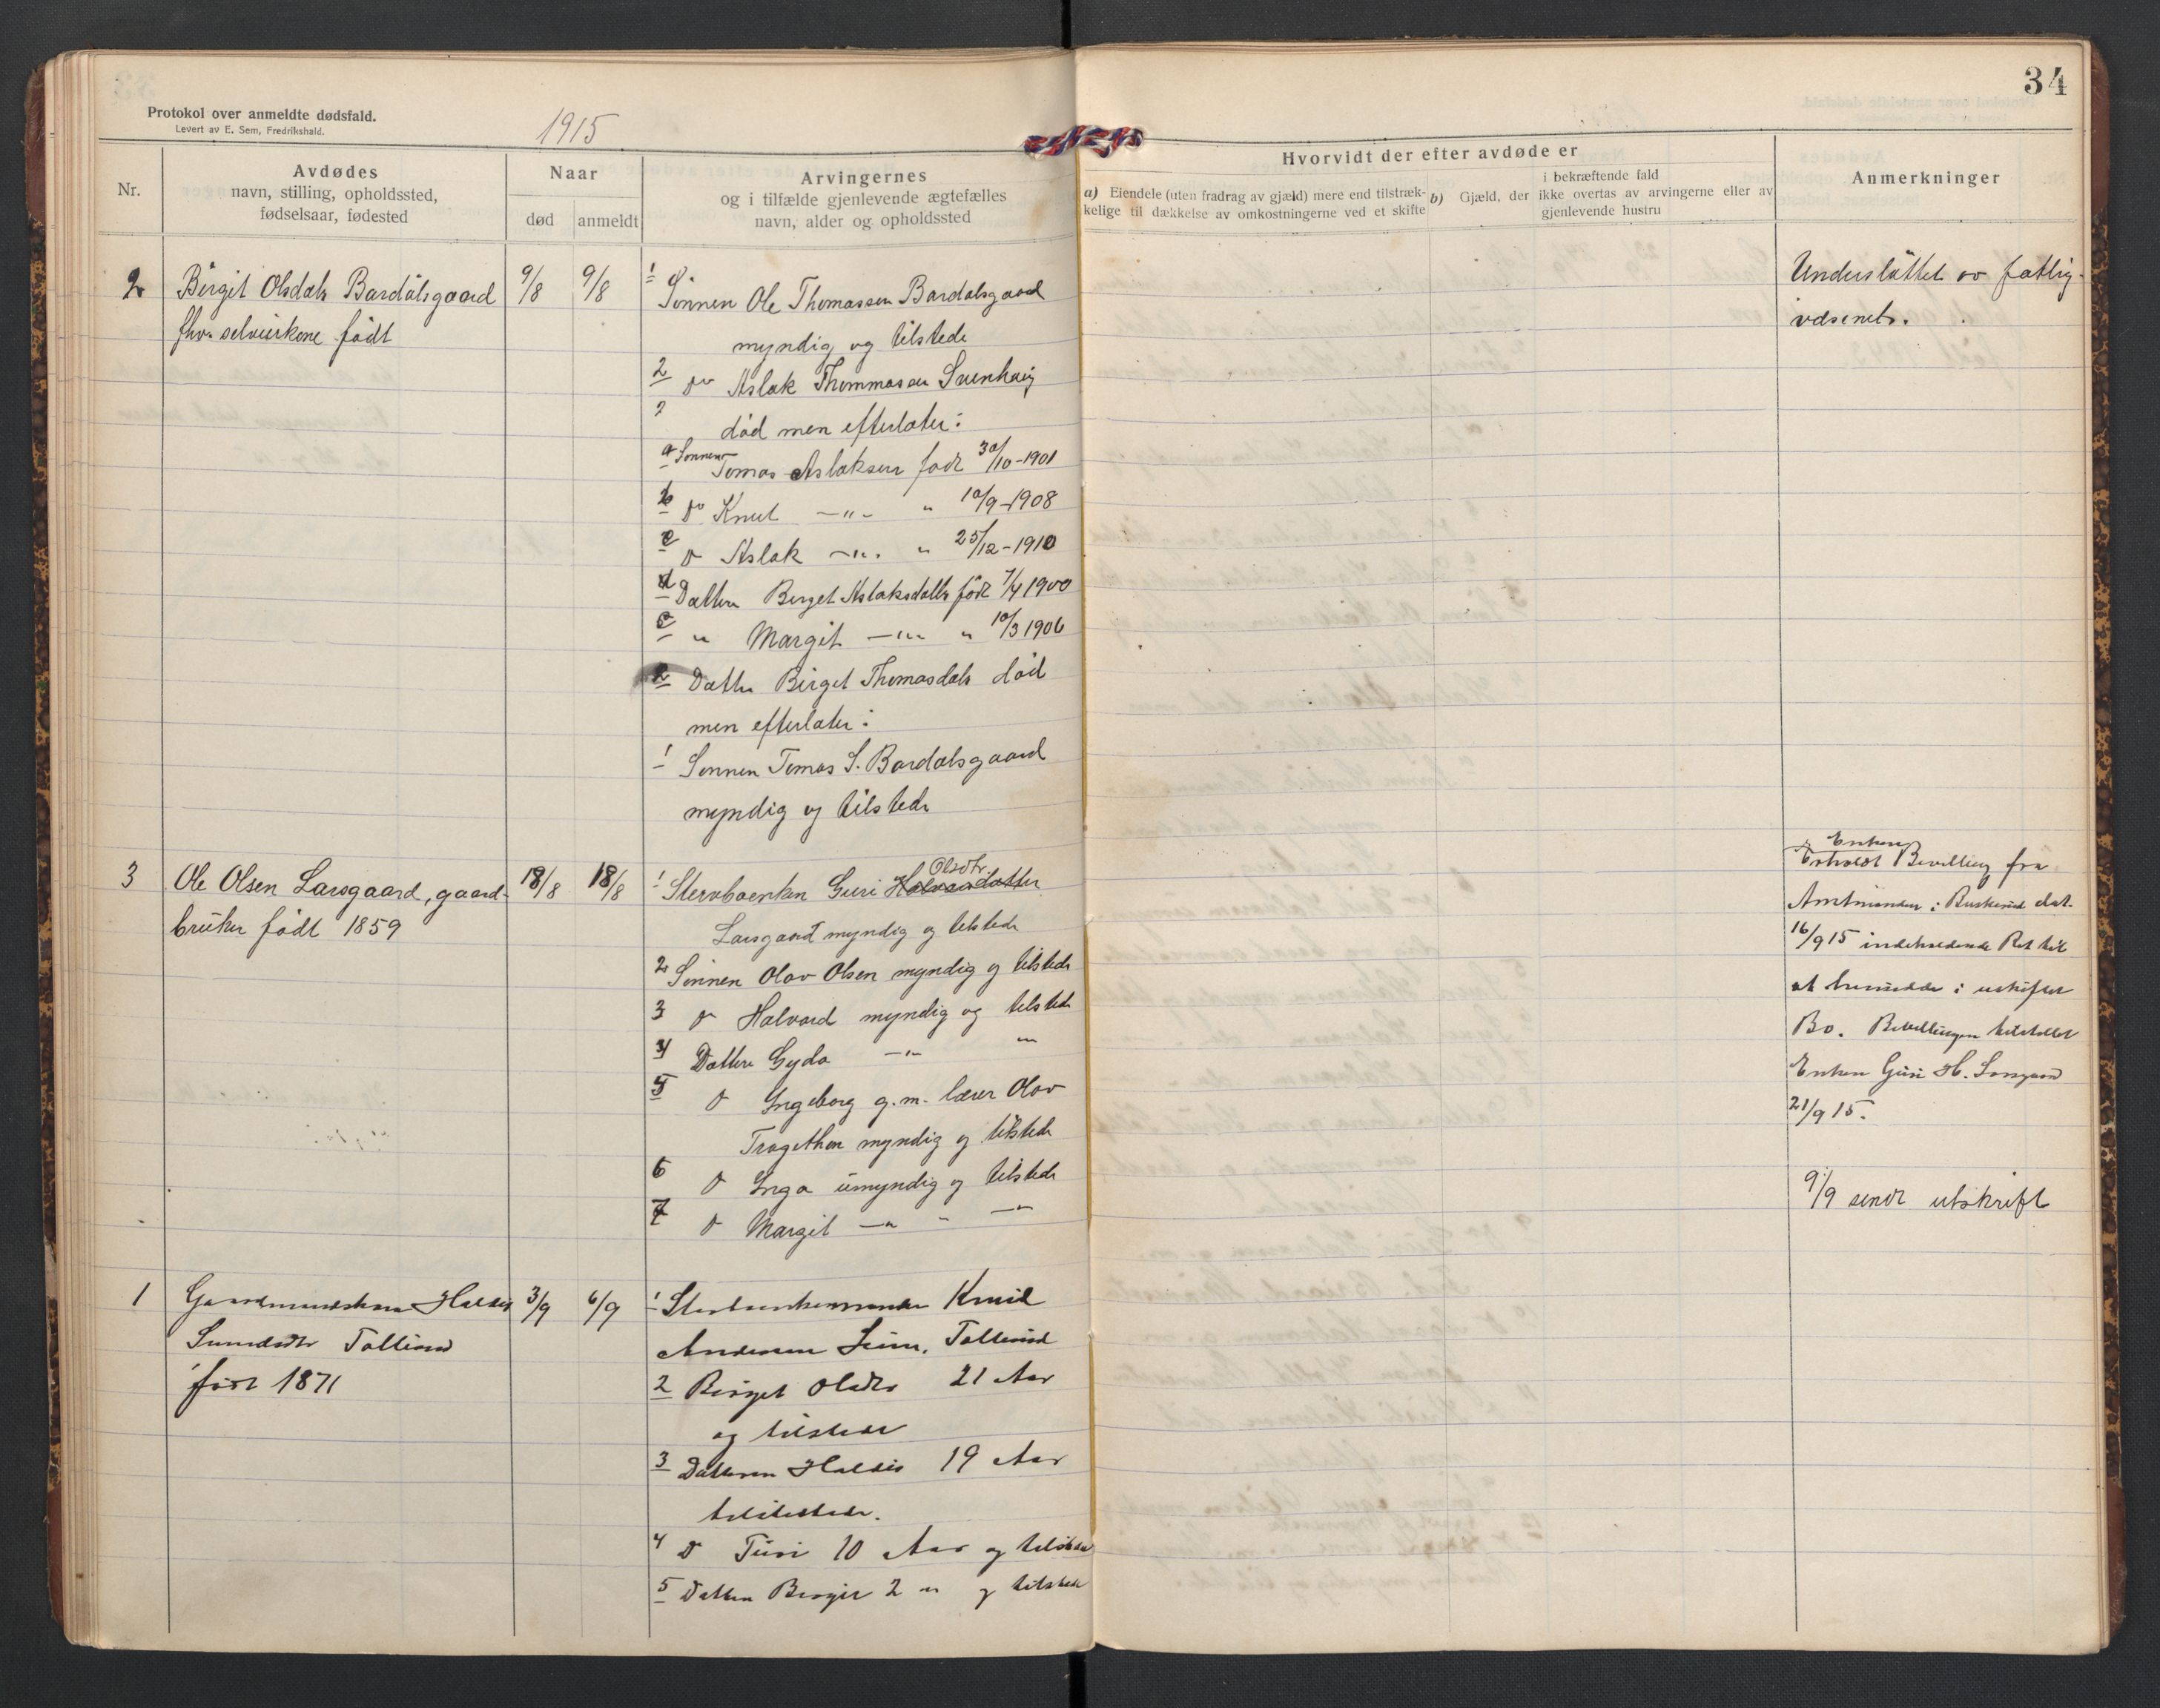 34
Protokol over anmeldte dødsfald.
Levert av E. Sem, Fredrikshald.
1915
Nr.
Avdødes
navn, stilling, opholdssted,
fødselsaar, fødested
Naar
død
anmeldt
Arvingernes
og i tilfælde gjenlevende ægtefælles
navn, alder og opholdssted
Hvorvidt der efter avdøde er
a) Eiendele (uten fradrag av gjæld) mere end tilstræk-
kelige til dækkelse av omkostningerne ved et skifte
b) Gjæld, der
i bekræftende fald
ikke overtas av arvingerne eller av
gjenlevende hustru
Anmerkninger
2 Birgit Olsdatr Bardalsgaard 9/8 9/8
fhv. selveierkone født
1 Sönnen Ole Thomassen Bardalsgaard
myndig og tilstede
2 do Aslak Thommassen
død men efterlater:
a Sönnen Tomas Aslaksen født 30/10-1901
b do Knut —"— " 10/9-1908
c do Aslak —"— " 25/12-1910
d Datteren Birget Aslaksdattr født 7/4 1900
e " Margit —"— " 10/3 1906
2 Dattr Birget Thomasdatr död
men efterlater:
1 Sönnen Tomas S. Bardalsgaard
myndig og tilstede
Understöttet av fattig-
væsenet.
3 Ole Olsen Larsgaard, gaard- 18/8 18/8
bruker født 1859
1 Stervboenken Guri Halvorsdatter Olsdtr.
Larsgaard myndig og tilstede
2 Sönnen Olav Olsen myndig og tilstede
3 do Halvard myndig og tilstede
4 Datteren Gyda —"— "
5 do Ingeborg g.m. lærer Olav
Tragethon myndig og tilstede
6 do Inga umyndig og tilstede
7 do Margit —"— " —"
Enken
Erholdt Bevilling fra
Amtmanden i Buskerud dat.
16/9 15 indeholdende Ret til
at hensidde i uskiftet
Bo. Bevillingen tilstillet
Enken Guri H. Larsgaard
21/9 15.
9/9 sendt utskrift
1 Gaardmandskone Haldis 3/9 6/9
Tollerud
født 1871
1 Knud
Andersen Tollerud
2 Birget Olsdtr 21 Aar
og tilstede
3 Datteren Haldis 19 Aar
tilstede.
4 do Turi 10 Aar og tilstede
5 Datteren Birgit 2 " og tilstede